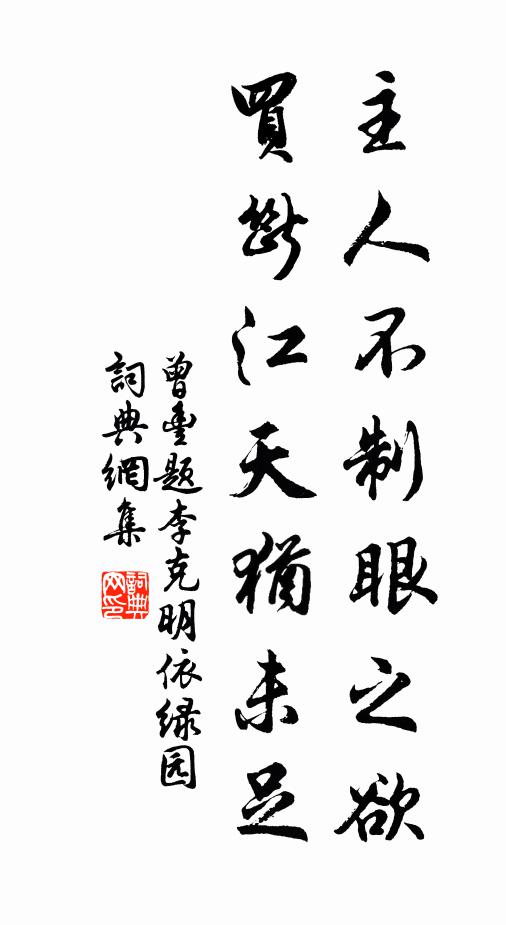 主人不制眼之欲
買斷江天猶未足
曾豐题李克明依绿园
詞典網集
詞典網印